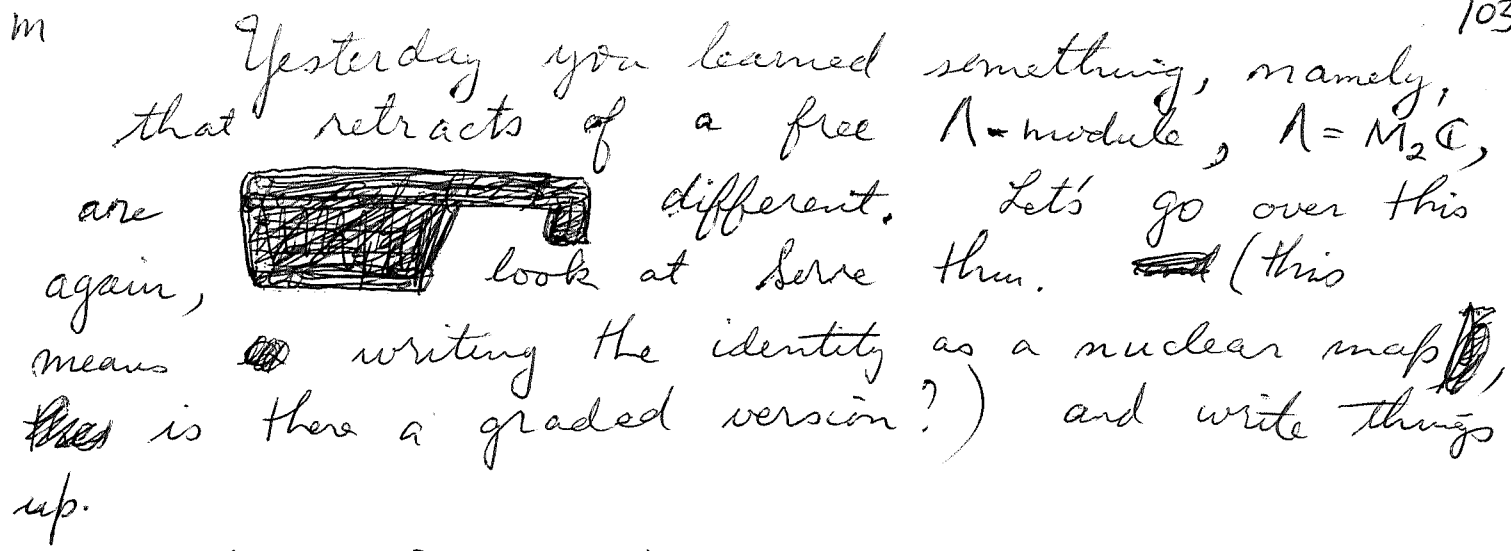 m 103
Yesterday you learned something, namely,
that retracts of a free Λ-module, Λ = M₂ℂ,
are different. Let's go over this
again, look at Serre thm. (this
means writing the identity as a nuclear map,
is there a graded version?) and write things
up.